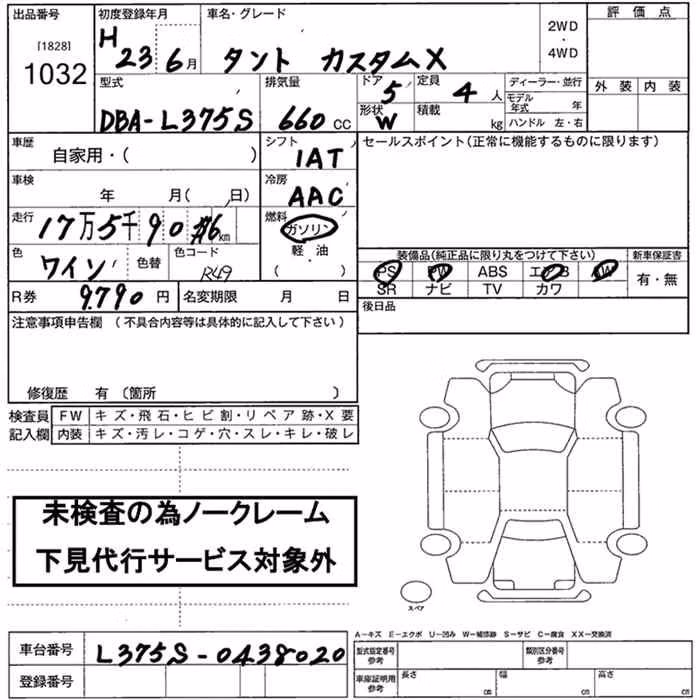 出品番号 初度登録年月 車名・グレード 評価点
[1828]
1032 H 23 6月 タント カスタムX 2WD・4WD
外装 内装
型式 排気量 ドア 5 定員 4人 ディーラー・並行
DBA-L375S 660 CC 形状 W 積載 kg モデル年式 年
ハンドル 左・右
車歴 シフト セールスポイント(正常に機能するものに限ります)
自家用・( ) IAT
車検 冷房
年 月( 日) AAC
走行 17万5千90 km 燃料 ガソリン
色 ワイン 色替 色コード R49 軽油 ( )
装備品(純正品に限り丸をつけて下さい) 新車保証書
PS PW ABS エアB AW 有・無
SR ナビ TV カワ
R券 9.790 円 名変期限 月 日
後日品
注意事項申告欄(不具合内容等は具体的に記入して下さい)
修復歴 有(箇所 )
検査員 FW キズ・飛石・ヒビ割・リペア跡・X要
記入欄 内装 キズ・汚レ・コゲ・穴・スレ・キレ・破レ
未検査の為ノークレーム
下見代行サービス対象外
スペア
A-キズ E-エクボ U-凹み W-補修跡 S-サビ C-腐食 XX-交換済
車台番号 L375S-0438020
型式指定番号 参考 類別区分番号 参考
登録番号
車庫証明用 参考 長さ cm 幅 cm 高さ cm